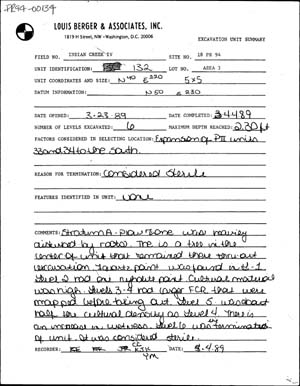 PR94-00134
LOUIS BERGER & ASSOCIATES, INC.
1819 H Street, NW • Washington, D.C. 20006
EXCAVATION UNIT SUMMARY
FIELD NO. INDIAN CREEK IV SITE NO. 18 PR 94
UNIT IDENTIFICATION: 132 LOT NO. AREA 3
UNIT COORDINATES AND SIZE: N40 E220 5x5
DATUM INFORMATION: N50 E230
DATE OPENED: 3-23-89 DATE COMPLETED: 3-4-89
NUMBER OF LEVELS EXCAVATED: 6 MAXIMUM DEPTH REACHED: 2.30 ft
FACTORS CONSIDERED IN SELECTING LOCATION: Expansion of PII units
33 and 34 to the south.
REASON FOR TERMINATION: Considered sterile
FEATURES IDENTIFIED IN UNIT: None
COMMENTS: Stratum A - Plow zone was heavily
disturbed by roots. The is a tree in the
center of unit that remained there
excavation. Quartz point was found in L-1
Level 2 had one rhyolite point cultural material
was high. Levels 3-4 had larger FCR that were
mapped before being out. Level 5 was about
half the cultural density as level 4. There is
an increase in wetness. Level 6 was termination
of unit. It was considered sterile.
RECORDER: DATE: 3-4-89
YM